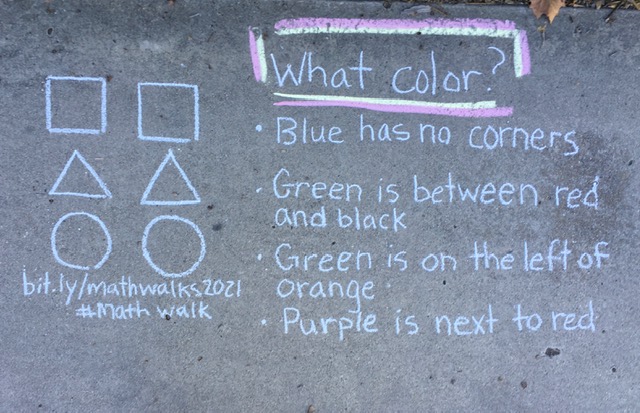 What color?
• Blue has no corners
• Green is between red
and black
• Green is on the left of
orange
• Purple is next to red
bit.ly/mathwalks2021
#Math walk